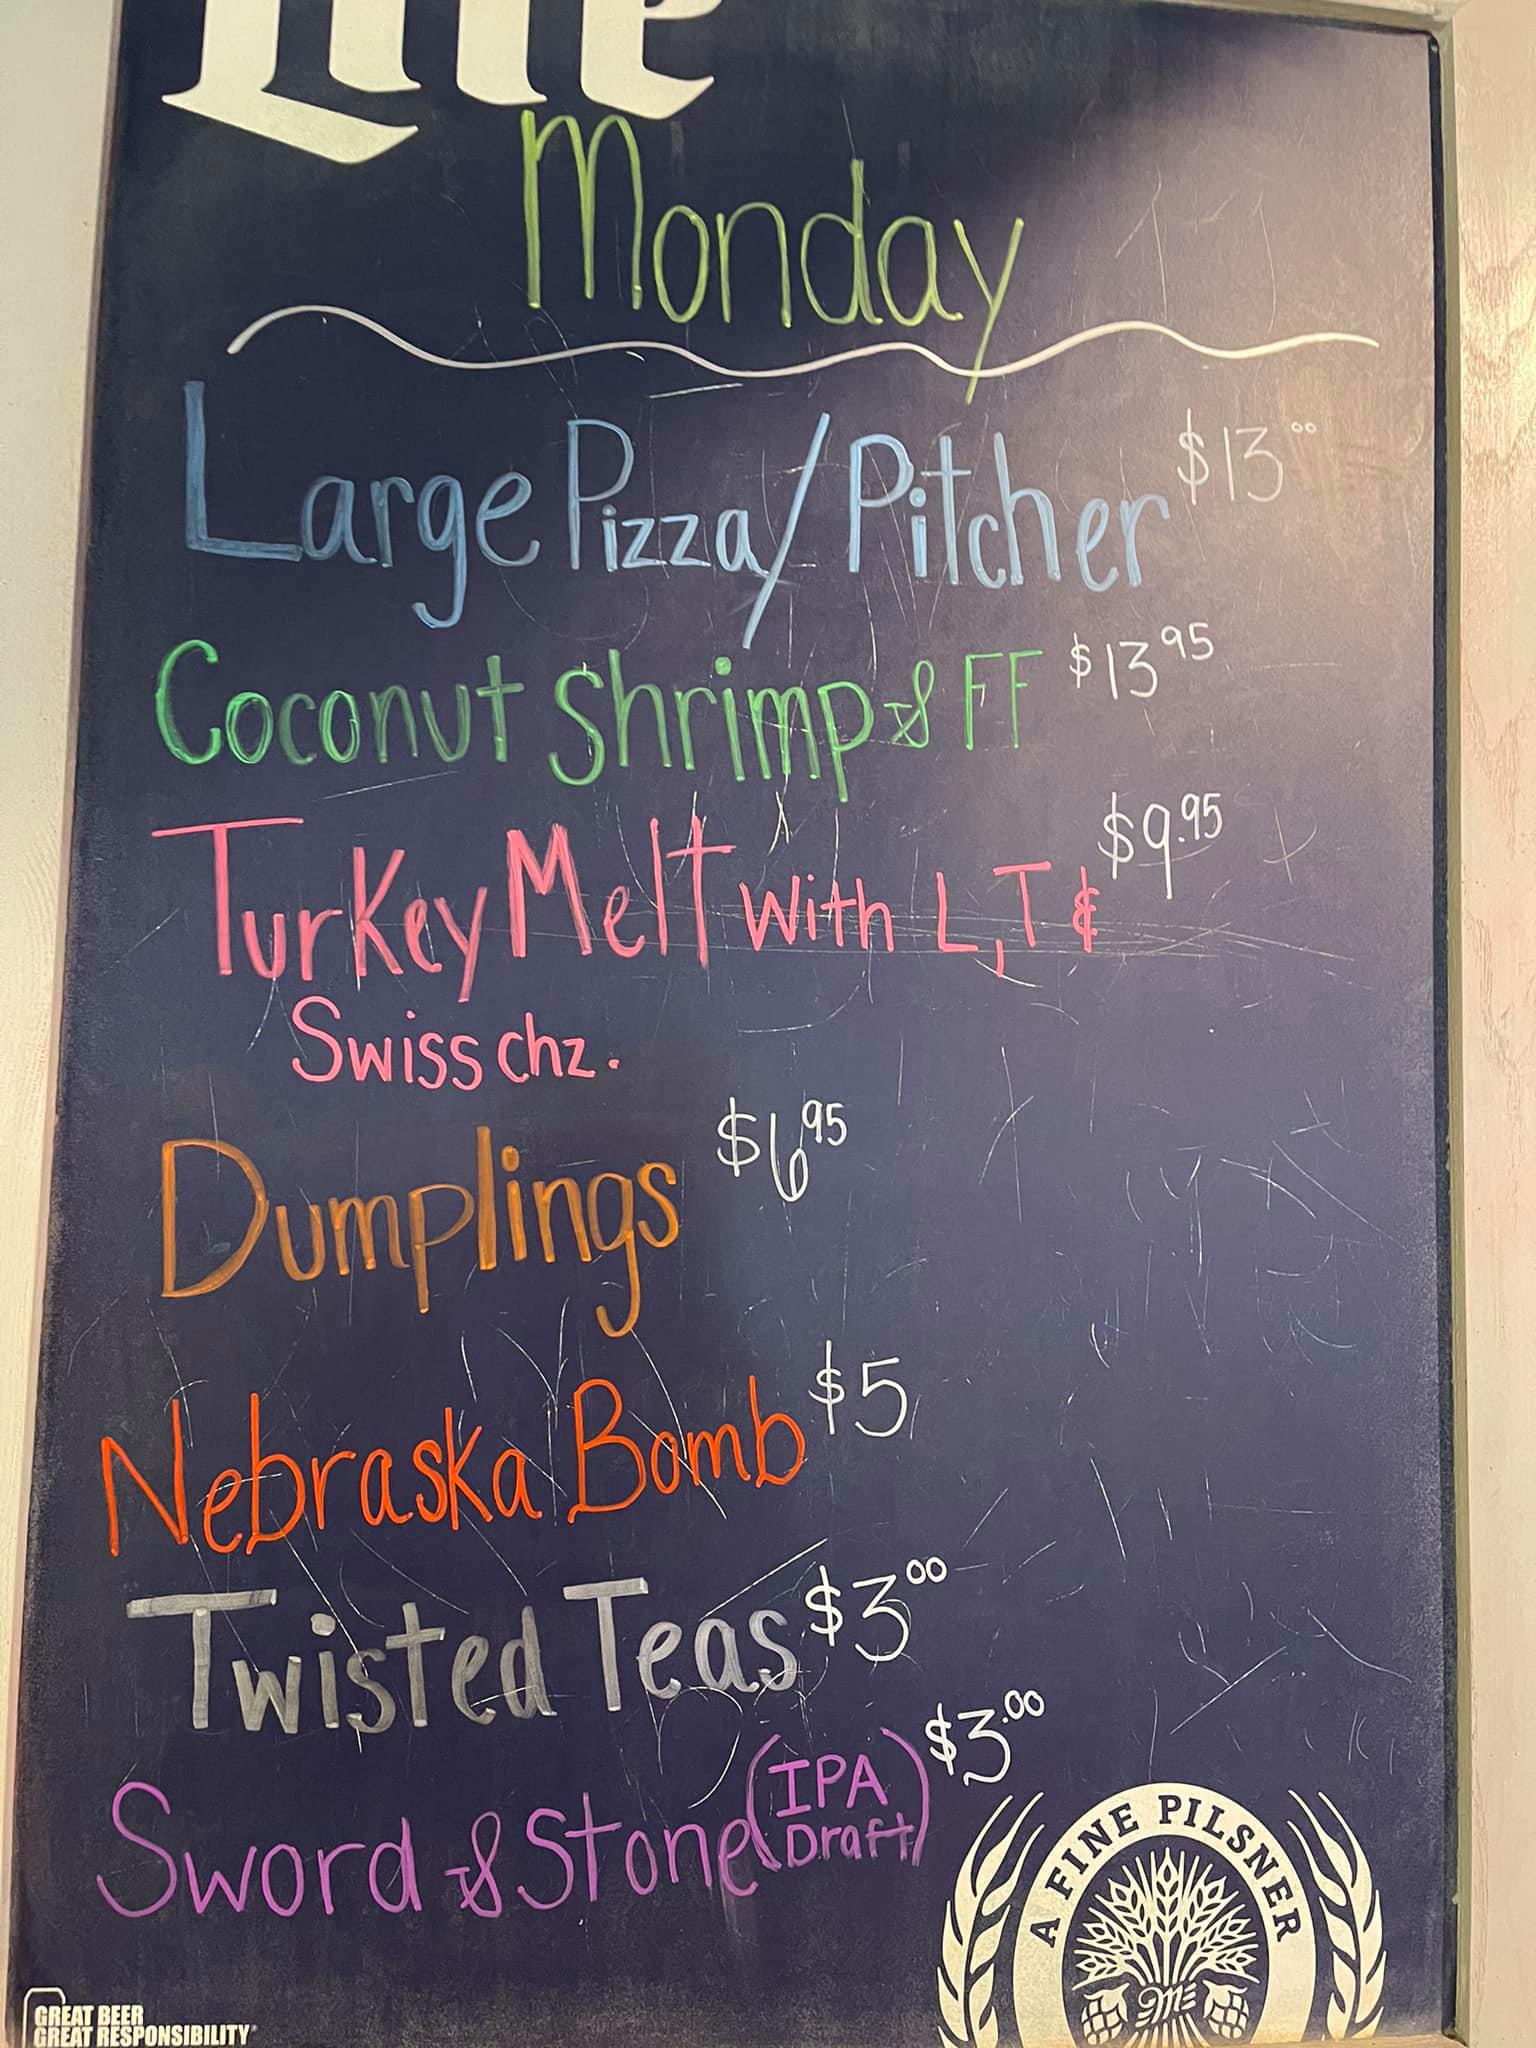 Lite
Monday
Large Pizza/Pitcher $13.00
Coconut Shrimp & FF $13.95
Turkey Melt with L,T & $9.95
Swiss chz.
Dumplings $6.95
Nebraska Bomb $5
Twisted Teas $3.00
Sword & Stone (IPA Draft) $3.00
A FINE PILSNER
GREAT BEER
GREAT RESPONSIBILITY®